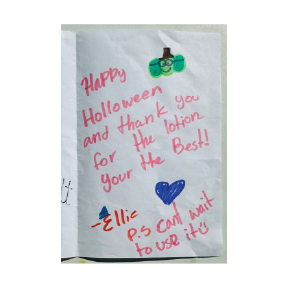 Happy
Holloween
and thank you
for the lotion
your the Best!
-Ellie
P.S Cant wait
to use it